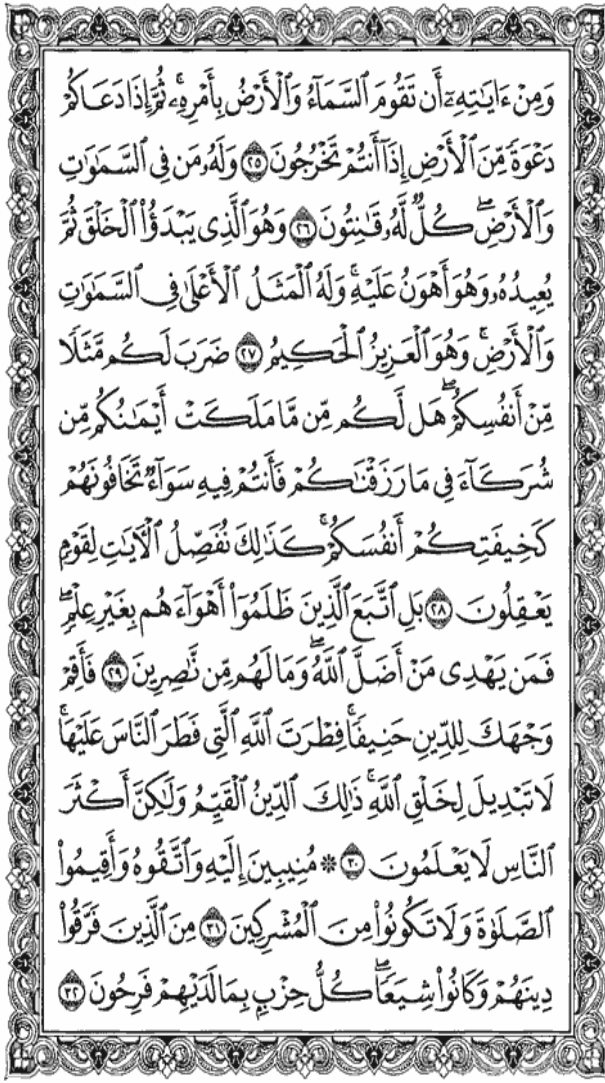 وَمِنْ ءَايَـٰتِهِۦٓ أَن تَقُومَ ٱلسَّمَآءُ وَٱلْأَرْضُ بِأَمْرِهِۦ ۚ ثُمَّ إِذَا دَعَاكُمْ
دَعْوَةً مِّنَ ٱلْأَرْضِ إِذَآ أَنتُمْ تَخْرُجُونَ ٢٥ وَلَهُۥ مَن فِى ٱلسَّمَـٰوَٰتِ
وَٱلْأَرْضِ ۖ كُلٌّ لَّهُۥ قَـٰنِتُونَ ٢٦ وَهُوَ ٱلَّذِى يَبْدَؤُا۟ ٱلْخَلْقَ ثُمَّ
يُعِيدُهُۥ وَهُوَ أَهْوَنُ عَلَيْهِ ۚ وَلَهُ ٱلْمَثَلُ ٱلْأَعْلَىٰ فِى ٱلسَّمَـٰوَٰتِ
وَٱلْأَرْضِ ۚ وَهُوَ ٱلْعَزِيزُ ٱلْحَكِيمُ ٢٧ ضَرَبَ لَكُم مَّثَلًا
مِّنْ أَنفُسِكُمْ ۖ هَل لَّكُم مِّن مَّا مَلَكَتْ أَيْمَـٰنُكُم مِّن
شُرَكَآءَ فِى مَا رَزَقْنَـٰكُمْ فَأَنتُمْ فِيهِ سَوَآءٌ تَخَافُونَهُمْ
كَخِيفَتِكُمْ أَنفُسَكُمْ ۚ كَذَٰلِكَ نُفَصِّلُ ٱلْـَٔايَـٰتِ لِقَوْمٍ
يَعْقِلُونَ ٢٨ بَلِ ٱتَّبَعَ ٱلَّذِينَ ظَلَمُوٓا۟ أَهْوَآءَهُم بِغَيْرِ عِلْمٍ ۖ
فَمَن يَهْدِى مَنْ أَضَلَّ ٱللَّهُ ۖ وَمَا لَهُم مِّن نَّـٰصِرِينَ ٢٩ فَأَقِمْ
وَجْهَكَ لِلدِّينِ حَنِيفًا ۚ فِطْرَتَ ٱللَّهِ ٱلَّتِى فَطَرَ ٱلنَّاسَ عَلَيْهَا ۚ
لَا تَبْدِيلَ لِخَلْقِ ٱللَّهِ ۚ ذَٰلِكَ ٱلدِّينُ ٱلْقَيِّمُ وَلَـٰكِنَّ أَكْثَرَ
ٱلنَّاسِ لَا يَعْلَمُونَ ٣٠ ۞ مُنِيبِينَ إِلَيْهِ وَٱتَّقُوهُ وَأَقِيمُوا۟
ٱلصَّلَوٰةَ وَلَا تَكُونُوا۟ مِنَ ٱلْمُشْرِكِينَ ٣١ مِنَ ٱلَّذِينَ فَرَّقُوا۟
دِينَهُمْ وَكَانُوا۟ شِيَعًا ۖ كُلُّ حِزْبٍۭ بِمَا لَدَيْهِمْ فَرِحُونَ ٣٢